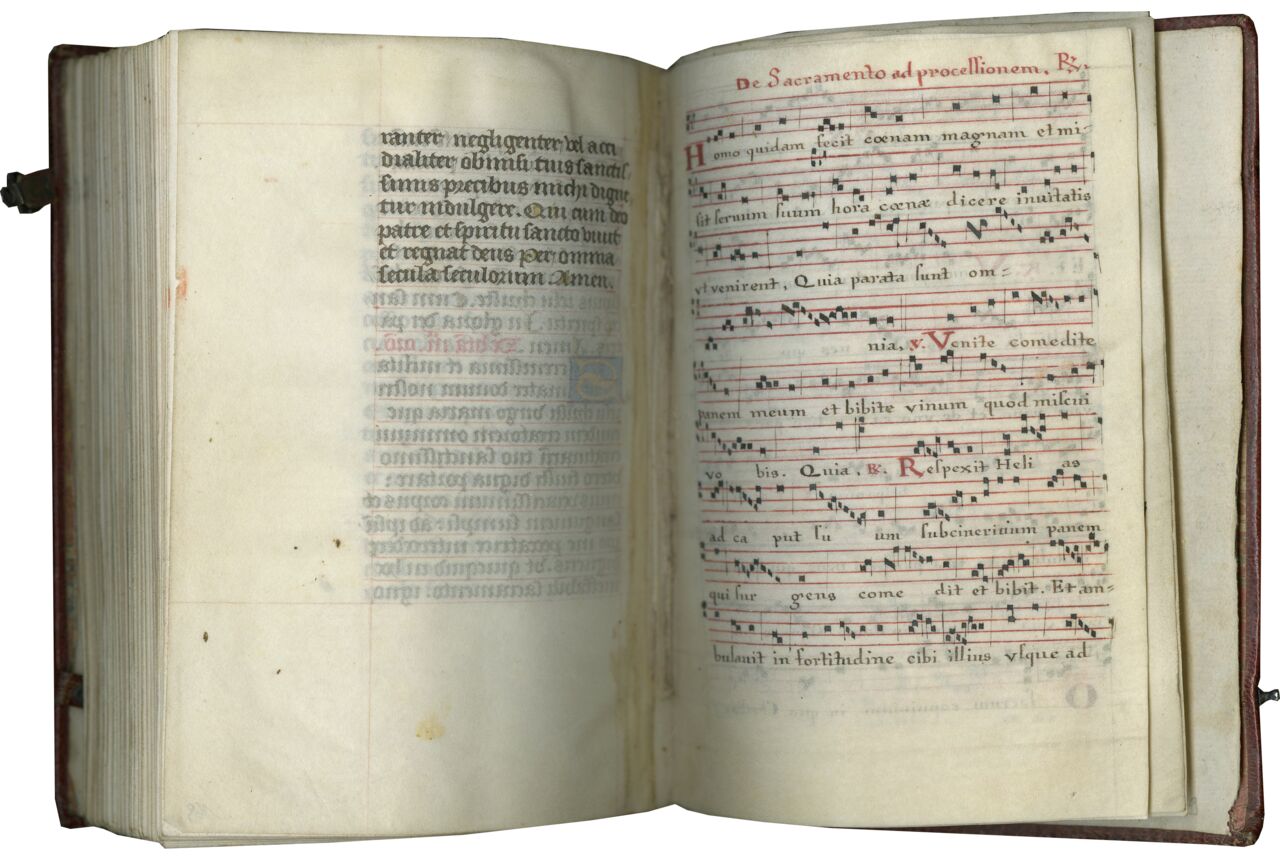 ranter negligenter vel acci
dialiter obmisi tuis sanctis
simis precibus michi digne
tur indulgere. Qui cum deo
patre et spiritu sancto vivit
et regnat deus per omnia
secula seculorum Amen.
De Sacramento ad processionem. ℟.
Homo quidam fecit cœnam magnam et mi-
sit servum suum hora cœnæ dicere invitatis
vt venirent, Quia parata sunt om-
nia. ℣. Venite comedite
panem meum et bibite vinum quod miscui
vo bis. Quia. ℟. Respexit Heli as
ad ca put su um subcinericium panem
qui sur gens come dit et bibit. Et am-
bulavit in fortitudine cibi illius vsque ad